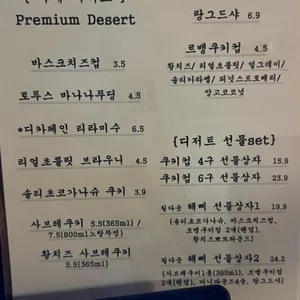 Premium Desert
바스크치즈컵 3.5
로투스 바나나푸딩 4.5
*디카페인 티라미수 6.5
리얼초콜릿 브라우니 4.5
솔티초코가나슈 쿠키 3.9
사브레쿠키 5.5(365ml)/
7.5(800ml노랑뚜껑)
황치즈 사브레쿠키
5.5(365ml)
랑그드샤 6.9
르뱅쿠키컵 4.5
황치즈/ 리얼초콜릿/ 얼그레이/
솔티카라멜/ 피넛스트로베리/
망고코코넛
{디저트 선물set}
쿠키컵 4구 선물상자 15.9
쿠키컵 6구 선물상자 23.9
해삐 선물상자1 19.9
(솔티초코가나슈, 바스크치즈컵,
르뱅쿠키컵 2개(랜덤),
해삐 선물상자2 24.2
(사브레쿠키1통(365ml), 르뱅쿠키컵
2개(랜덤), 랑그드샤)